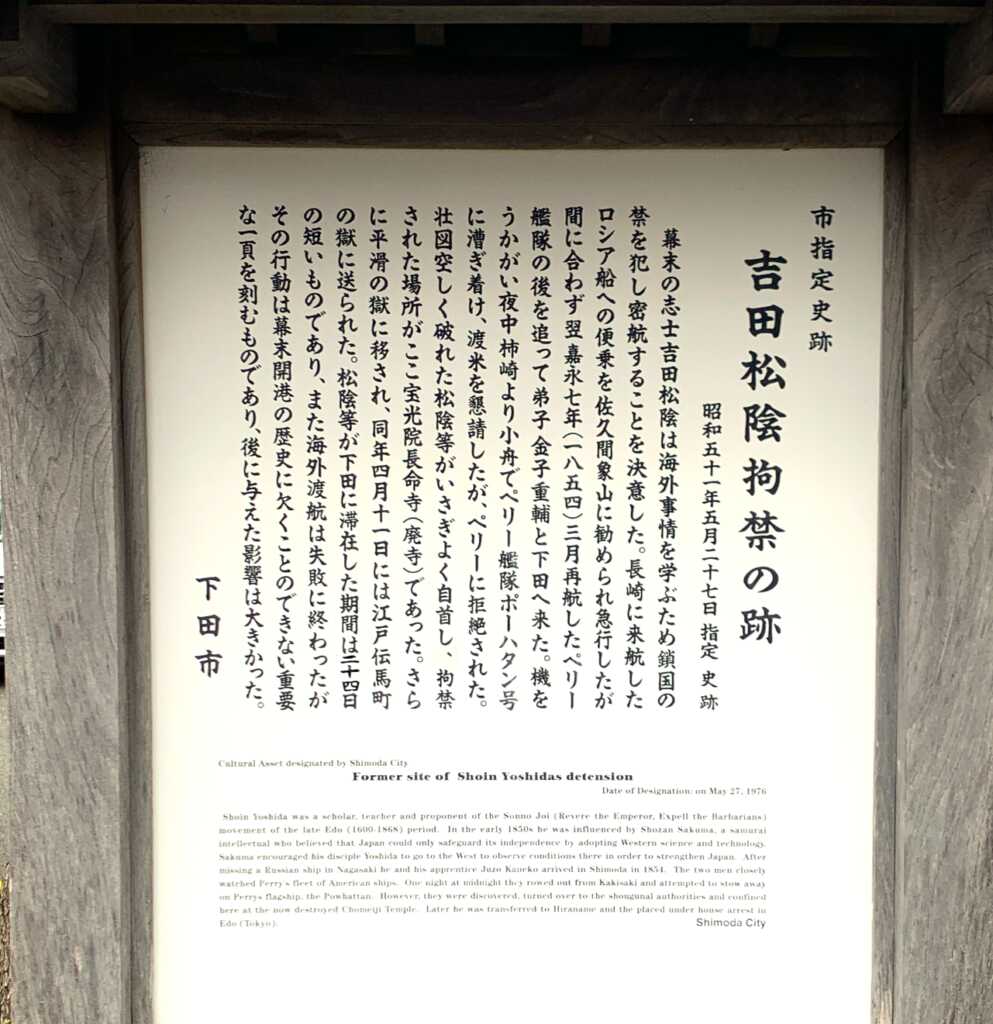 市指定史跡
吉田松陰拘禁の跡
昭和五十一年五月二十七日 指定 史跡
幕末の志士吉田松陰は海外事情を学ぶため鎖国の
禁を犯し密航することを決意した。長崎に来航した
ロシア船への便乗を佐久間象山に勧められ急行したが
間に合わず翌嘉永七年(一八五四)三月再航したペリー
艦隊の後を追って弟子金子重輔と下田へ来た。機を
うかがい夜中柿崎より小舟でペリー艦隊ポーハタン号
に漕ぎ着け、渡米を懇請したが、ペリーに拒絶された。
壮図空しく破れた松陰等がいさぎよく自首し、拘禁
された場所がここ宝光院長命寺(廃寺)であった。さら
に平滑の獄に移され、同年四月十一日には江戸伝馬町
の獄に送られた。松陰等が下田に滞在した期間は二十四日
の短いものであり、また海外渡航は失敗に終わったが
その行動は幕末開港の歴史に欠くことのできない重要
な一頁を刻むものであり、後に与えた影響は大きかった。
下田市
Cultural Asset designated by Shimoda City
Former site of Shoin Yoshidas detension
Date of Designation: on May 27, 1976
Shoin Yoshida was a scholar, teacher and proponent of the Sonno Joi (Revere the Emperor, Expell the Barbarians)
movement of the late Edo (1600-1868) period. In the early 1850s he was influenced by Shozan Sakuma, a samurai
intellectual who believed that Japan could only safeguard its independence by adopting Western science and technology.
Sakuma encouraged his disciple Yoshida to go to the West to observe conditions there in order to strengthen Japan. After
missing a Russian ship in Nagasaki he and his apprentice Juzo Kaneko arrived in Shimoda in 1854. The two men closely
watched Perry's fleet of American ships. One night at midnight they rowed out from Kakisaki and attempted to stow away
on Perrys flagship, the Powhattan. However, they were discovered, turned over to the shougunal authorities and confined
here at the now destroyed Chomeiji Temple. Later he was transferred to Hiraname and the placed under house arrest in
Edo (Tokyo).
Shimoda City